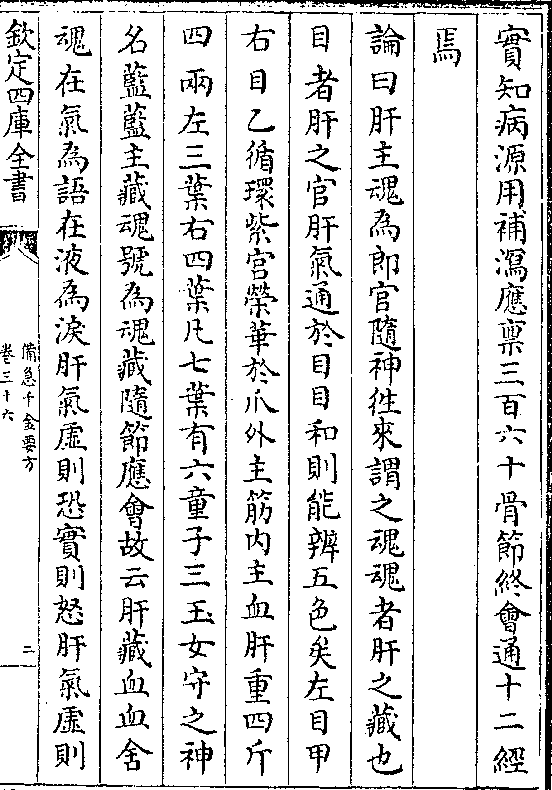 實知病源用補瀉應禀三百六十骨節終會通十二經
焉
論曰肝主魂為郎官隨神往來謂之魂魂者肝之藏也
目者肝之官肝氣通於目目和則能辨五色矣左目甲
右目乙循環紫宫榮華於爪外主筋内主血肝重四斤
四兩左三葉右四葉凡七葉有六童子三玉女守之神
名藍藍主藏魂號為魂藏隨節應會故云肝藏血血舍
魂在氣為語在液為淚肝氣虛則恐實則怒肝氣虛則
欽定四庫全書
備急千金要方
卷三十六
二